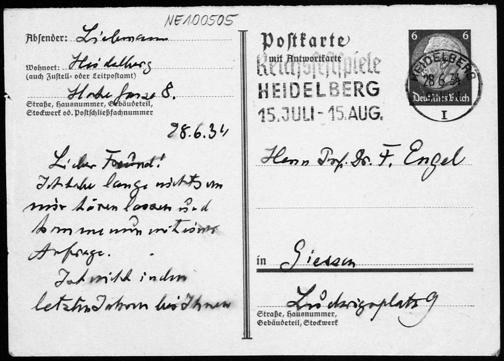 NE100505
Absender: Liebmann
Wohnort: Heidelberg
(auch Zustell- oder Leitpostamt)
gasse 8.
Straße, Hausnummer, Gebäudeteil,
Stockwerk od. Postschließfachnummer
28.6.34
Lieber Freund!
Ich habe lange nichts von
mir hören lassen und
komme nun mit einer
Anfrage.
Ist nicht in den
letzten Jahren bei Ihnen
Postkarte
mit Antwortkarte
Reichsfestspiele
HEIDELBERG
15. JULI - 15. AUG.
6 6
Deutsches Reich
HEIDELBERG
28.6.34
I
Herrn Prof. Dr. F. Engel
in Giessen
Ludwigsplatz 9
Straße, Hausnummer,
Gebäudeteil, Stockwerk